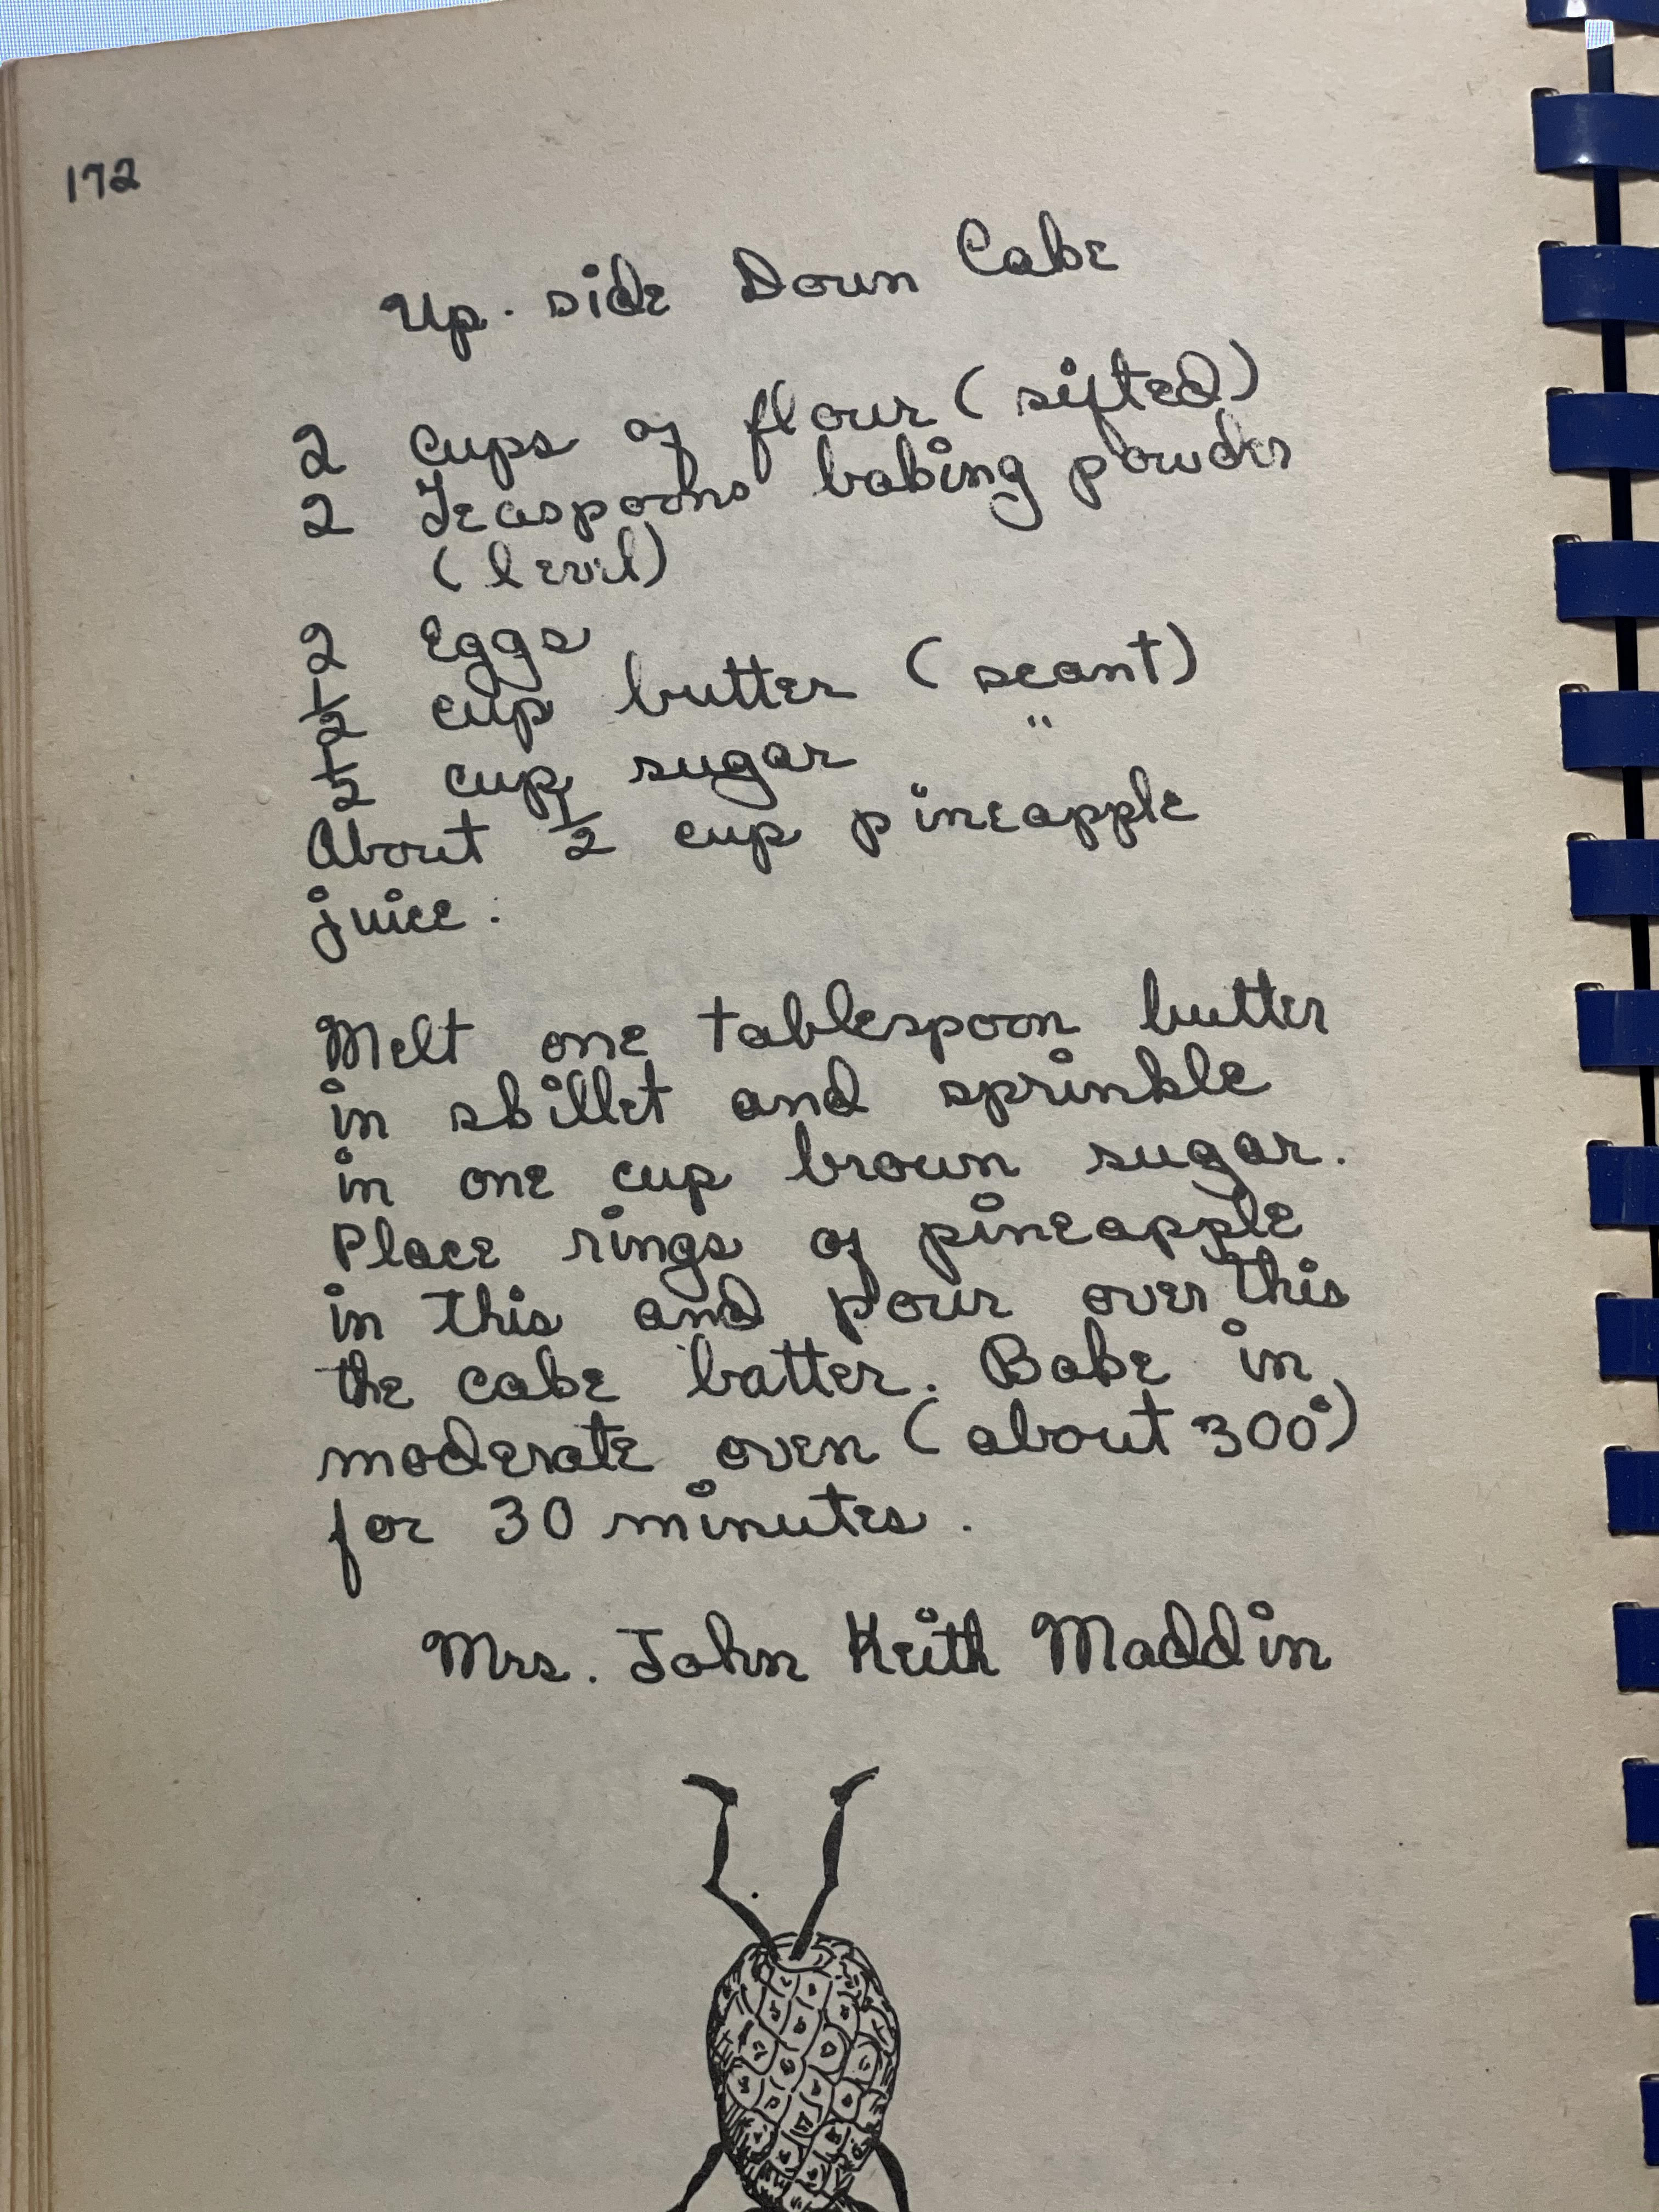 172
Up-side Down Cake
2 cups of flour (sifted)
2 Teaspoons baking powder
(level)
2 Eggs
1/2 cup butter (scant)
1/2 cup sugar "
About 1/2 cup pineapple
juice.
Melt one tablespoon butter
in skillet and sprinkle
in one cup brown sugar.
Place rings of pineapple
in this and pour over this
the cake batter. Bake in
moderate oven (about 300°)
for 30 minutes.
Mrs. John Keith Maddin